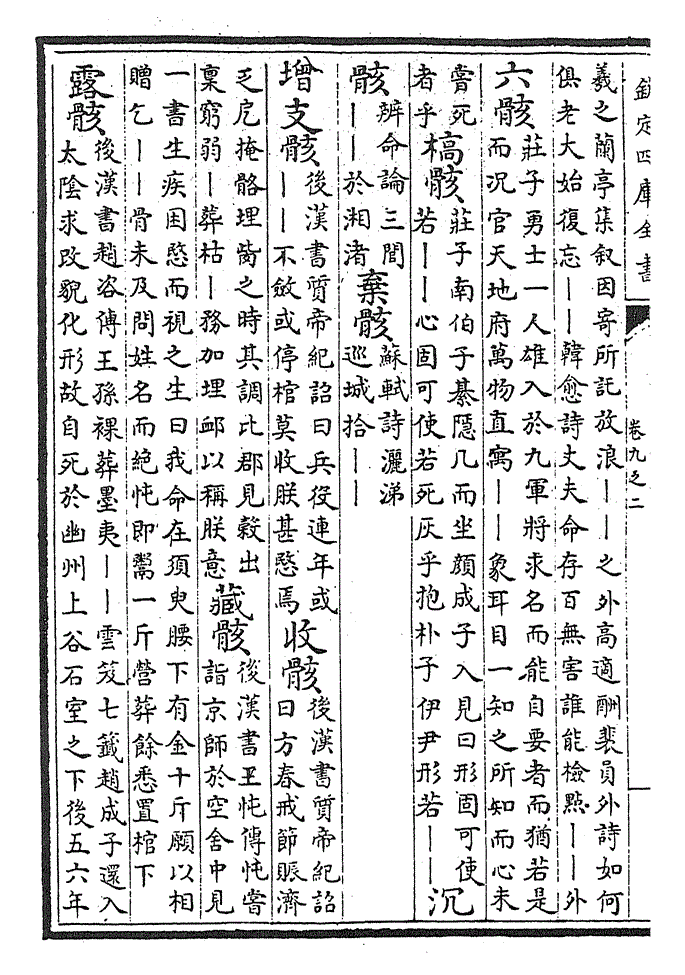 欽定四庫全書 卷九之二
羲之蘭亭集叙因寄所託放浪——之外高適酬裴員外詩如何
俱老大始復忘——韓愈詩丈夫命存百無害誰能檢點——外
六骸 莊子勇士一人雄入於九軍將求名而能自要者而猶若是
而況官天地府萬物直寓——象耳目一知之所知而心未
嘗死者乎 槁骸 莊子南伯子綦隱几而坐顔成子入見曰形固可使
若——心固可使若死灰乎抱朴子伊尹形若—— 沉
骸 辨命論三閭——於湘渚 棄骸 蘇軾詩灑涕巡城拾——
增支骸 後漢書質帝紀詔曰兵役連年或
——不斂或停棺莫收朕甚愍焉 收骸 後漢書質帝紀詔曰方春戒節賑濟
乏戹掩骼埋胔之時其調比郡見穀出
稟窮弱—葬枯—務加埋䘏以稱朕意 藏骸 後漢書王忳傳忳嘗詣京師於空舍中見
一書生疾困愍而視之生曰我命在須臾腰下有金十斤願以相
贈乞——骨未及問姓名而絶忳即鬻一斤營葬餘悉置棺下
露骸 後漢書趙咨傳王孫裸葬墨夷——雲笈七籤趙成子還入
太陰求改貌化形故自死於幽州上谷石室之下後五六年